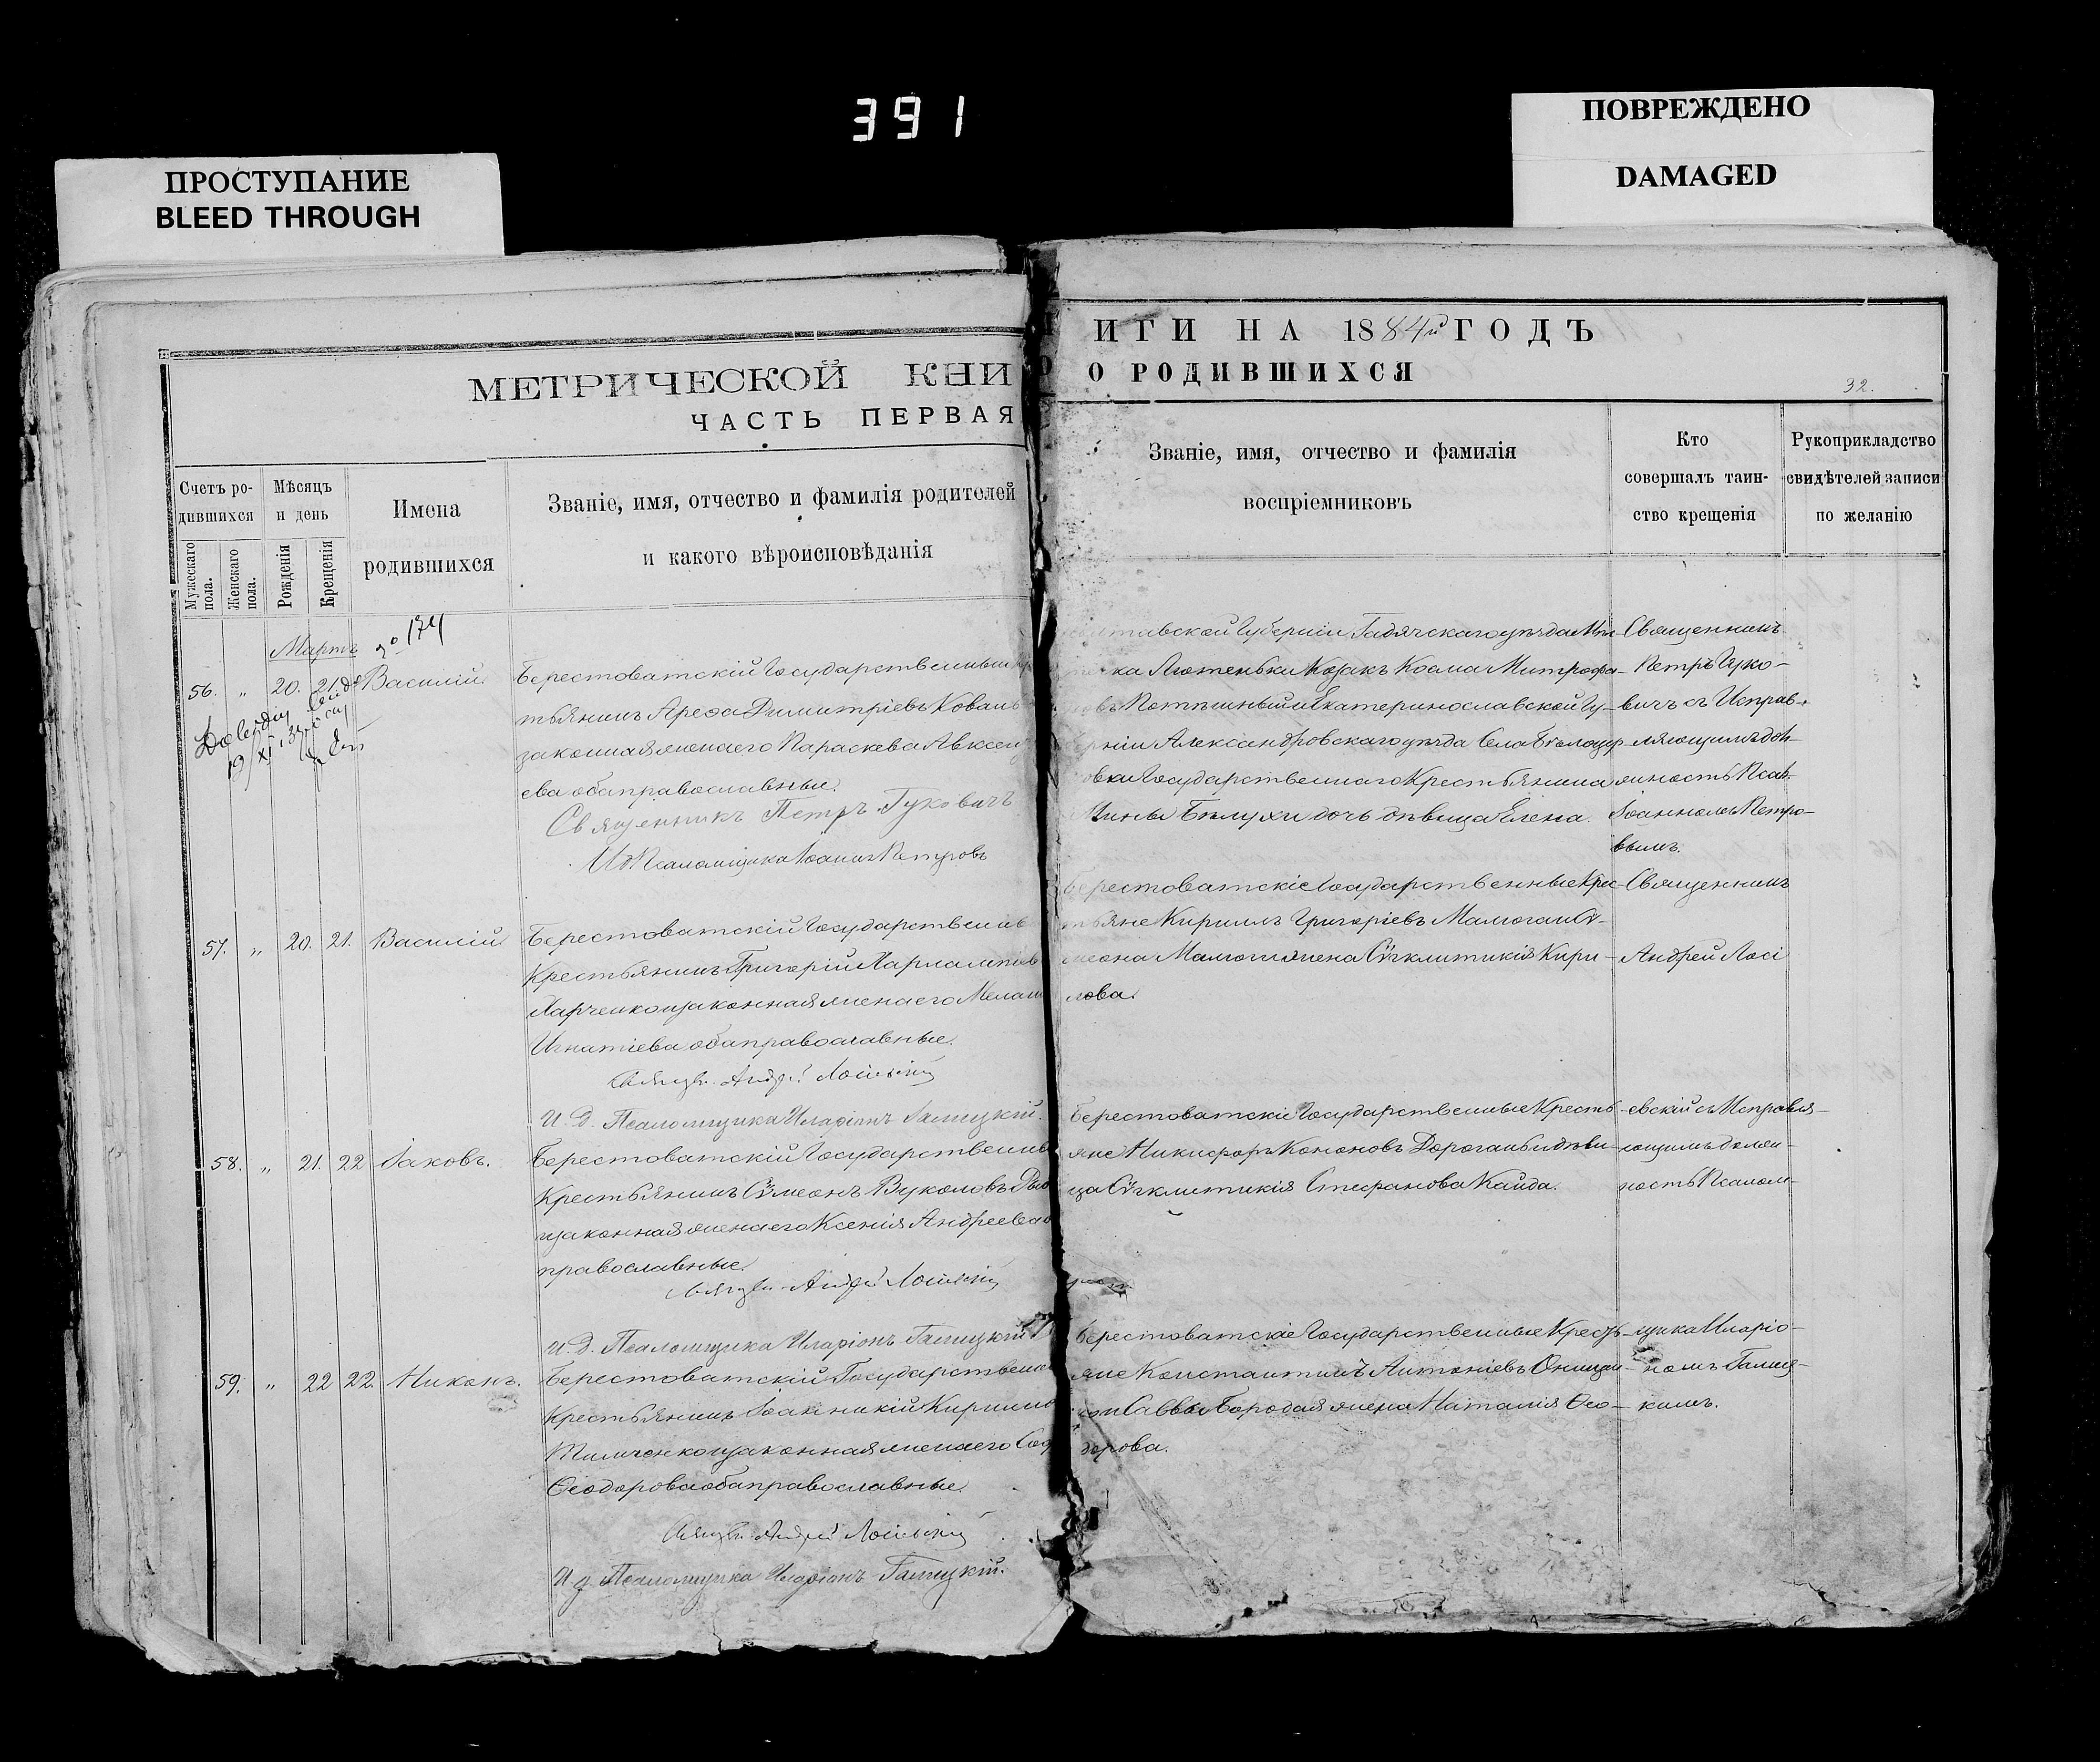 391
ПРОСТУПАНИЕ
BLEED THROUGH
ПОВРЕЖДЕНО
DAMAGED
МЕТРИЧЕСКОЙ КНИ
ЧАСТЬ ПЕРВАЯ
ИГИ НА 1884й ГОДЪ
О РОДИВШИХСЯ
32.
Счетъ ро-
дившихся
Мужескаго пола.
Женскаго пола.
Мѣсяцъ
и день
Рожденія
Крещенія
Имена
родившихся
Званіе, имя, отчество и фамилія родителей
и какого вѣроисповѣданія
Званіе, имя, отчество и фамилія
воспріемниковъ
Кто
совершалъ таин-
ство крещенія
Рукоприкладство
свидѣтелей записи
по желанію
Мартъ
№ 174
56. " 20. 21. Василій.
Берестоватскій Государственный
тьянинъ Ареѳа Димитріевъ Коваль
законная жена его Параскева Авксен
ева оба православные.
Священникъ Петръ Гуковичъ
И. д. Псаломщика Іоаннъ Петровъ
Полтавской Губерніи Гадячскаго уѣзда Мѣс-
течка Лютеньки Козакъ Косма Митрофа-
новъ Екатеринославской Гу-
берніи Александровскаго уѣзда Села Бѣлоцер-
ковки Государственнаго Крестьянина
Мины Бѣлухи дочь дѣвица Елена.
Священникъ
Петръ Гуко-
вичъ съ Исправ-
ляющимъ дол-
жность Псал.
Іоанномъ Петро-
вымъ.
57. " 20. 21. Василій
Берестоватскій Государственны
Крестьянинъ Григорій Харлампіев
Харченко и законная жена его Мелан
Игнатіева оба православные.
Свящ. Андрей Лосіевскій
И. Д. Псаломщика Иларіонъ Галицкій.
Берестоватскіе Государственные Крес-
тьяне Кириллъ Григоріевъ и Сѵ-
меона жена Сѵгклитикія Кири-
лова.
Священникъ
Андрей Лосі
58. " 21. 22 Іаковъ.
Берестоватскій Государственны
Крестьянинъ Сѵмеонъ Вуколовъ
и законная жена его Ксенія Андреева
православные.
Свящ. Андрей Лосіевскій
И. Д. Псаломщика Иларіонъ Галицкій
Берестоватскіе Государственные Кресть-
яне Никифоръ Кононовъ и дѣви-
ца Сѵгклитикія Стефанова Кайда.
евскій съ Исправля-
ющимъ долж-
ность Псалом-
59. " 22 22 Никонъ.
Берестоватскій Государственны
Крестьянинъ Іоанникій Кирилло
Тимченко и законная жена его Соф
Ѳеодорова оба православные.
Свящ. Андрей Лосіевскій
И. д. Псаломщика Иларіонъ Галицкій.
Берестоватскіе Государственные Кресть-
яне Константинъ Антоніевъ
и Саввы Бородая жена Наталія Ѳео-
дорова.
щика Иларіо-
номъ Галиц-
кимъ.